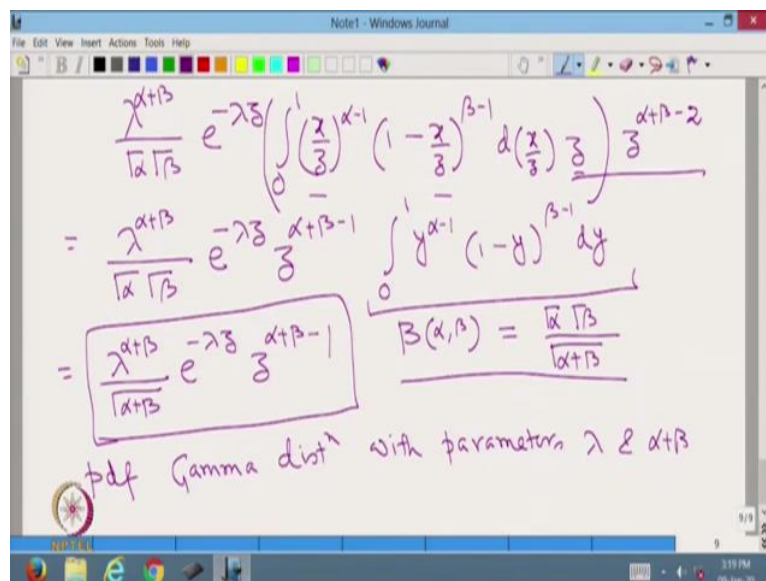 Note1 - Windows Journal
File Edit View Insert Actions Tools Help
B I
λ^{α+β} / (Γα Γβ) e^{-λz} ( ∫_0^1 (x/z)^{α-1} (1 - x/z)^{β-1} d(x/z) z ) z^{α+β-2}
= λ^{α+β} / (Γα Γβ) e^{-λz} z^{α+β-1} ∫_0^1 y^{α-1} (1-y)^{β-1} dy
= λ^{α+β} / Γ(α+β) e^{-λz} z^{α+β-1} β(α,β) = Γα Γβ / Γ(α+β)
pdf Gamma distⁿ with parameters λ & α+β
NPTEL
9/9
9
3:19 PM